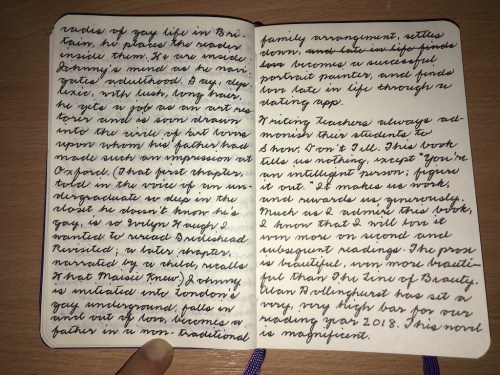 cades of gay life in Bri-
tain, he places the reader
inside them. We are inside
Johnny's mind as he navi-
gates adulthood. Gay, dys-
lexic, with lush, long hair,
he gets a job as an art res-
torer and is soon drawn
into the circle of art lovers
upon whom his father had
made such an impression at
Oxford. (That first chapter,
told in the voice of an un-
dergraduate so deep in the
closet he doesn't know he's
gay, is so Evelyn Waugh I
wanted to reread Brideshead
Revisited; a later chapter,
narrated by a child, recalls
What Maisie Knew.) Johnny
is initiated into London's
gay underground, falls in
and out of love, becomes a
father in a non-traditional
family arrangement, settles
down, and late in life finds
love becomes a successful
portrait painter, and finds
love late in life through a
dating app.
Writing teachers always ad-
monish their students to
Show, Don't Tell. This book
tells us nothing, except "You're
an intelligent person; figure
it out." It makes us work,
and rewards us generously.
Much as I admire this book,
I know that I will love it
even more on second and
subsequent readings. The prose
is beautiful, even more beauti-
ful than The Line of Beauty.
Alan Hollinghurst has set a
very, very high bar for our
reading year 2018. This novel
is magnificent.